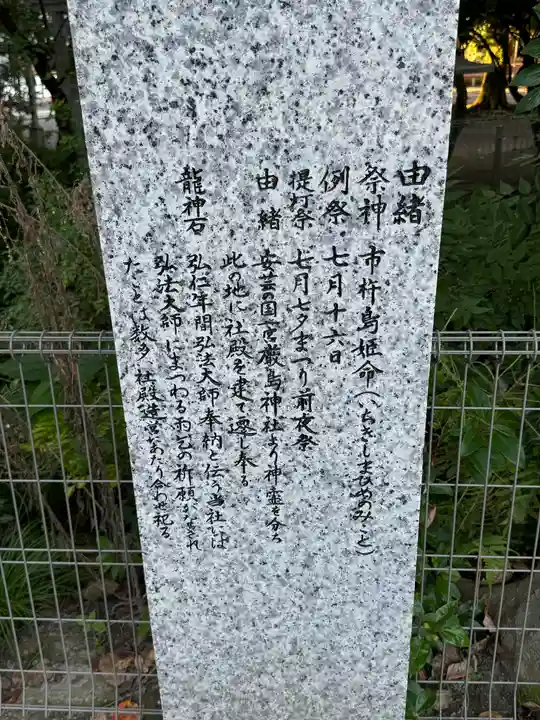 由緒
祭神 市杵島姫命(いちきしまひめのみこと)
例祭 七月十六日
提灯祭 七月七夕まつり前夜祭
由緒 安芸の国一宮厳島神社より神霊を分ち
此の地に社殿を建て遷し奉る
龍神石 弘仁年間弘法大師奉納と伝う当社には
弘法大師にまつわる雨乞の祈願がなされ
たことは数多 社殿造営にあたり合わせ祀る